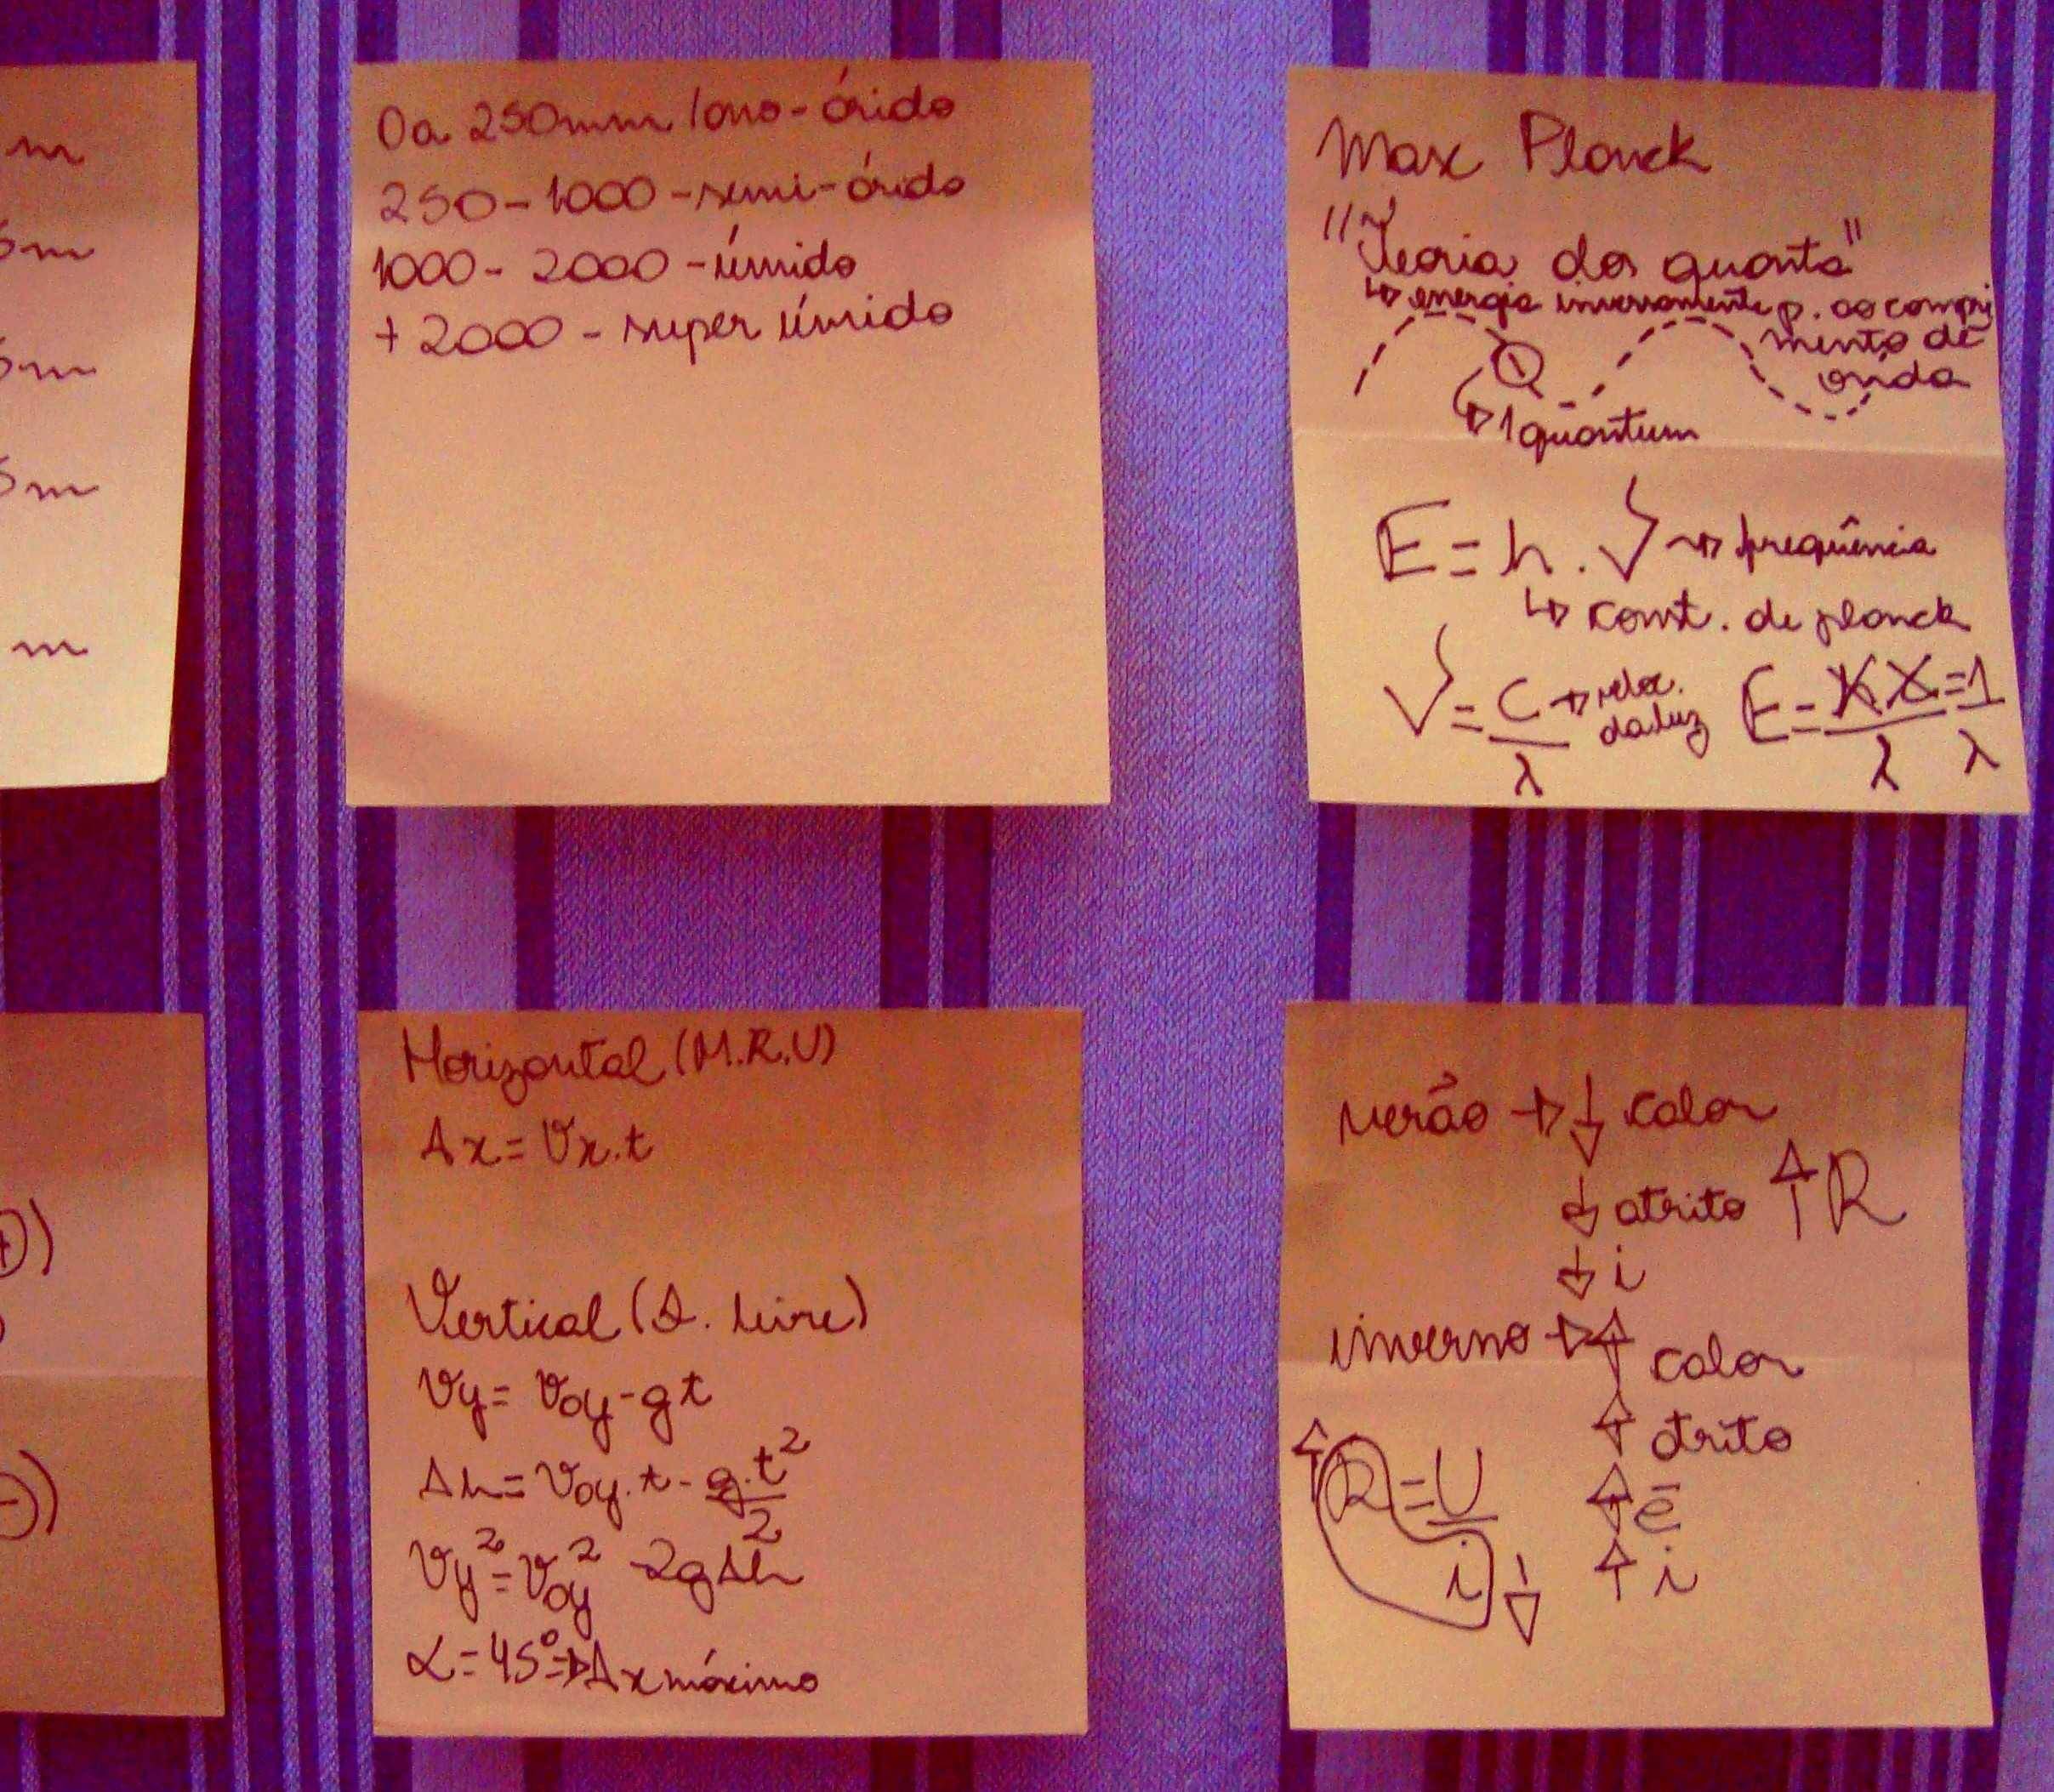 m
5m
5m
5m
m
0 a 250mm/ano - árido
250 - 1000 - semi-árido
1000 - 2000 - úmido
+ 2000 - super úmido
Max Planck
"Teoria dos quanta"
↳ energia inversamente p. ao compri
mento de
onda
↳ 1 quantum
E = h . √ → freqüência
↳ const. de planck
√ = C → veloc. da luz
λ
E = h c = 1
λ λ
+))
-))
Horizontal (M.R.U)
Δx = Vx.t
Vertical (L. livre)
Vy = Voy - gt
Δh = Voy.t - g.t²
2
Vy² = Voy² - 2gΔh
α = 45° ⇒ Δx máximo
verão → ↓ calor
↓ atrito ↑ R
↓ i
inverno → ↑ calor
↑ atrito
↑ e̅
↑ i
↑ R = U
i ↓